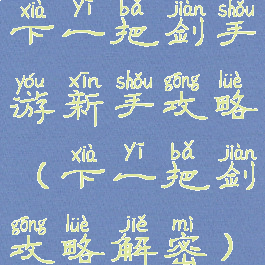 xià yī bǎ jiàn shǒu
下一把剑手
yóu xīn shǒu gōng lüè
游新手攻略
xià yī bǎ jiàn
（下一把剑
gōng lüè jiě mì
攻略解密）